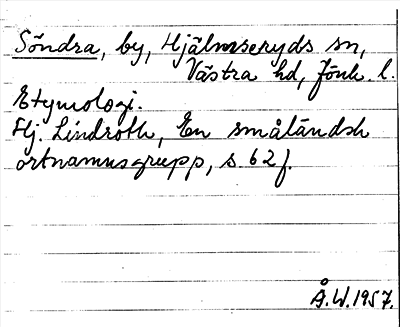 Söndra, by, Hjälmseryds sn,
Västra hd, Jönk. l.
Etymologi.
Hj. Lindroth, En småländsk
ortnamnsgrupp, s. 62 f.
Å.W. 1957.